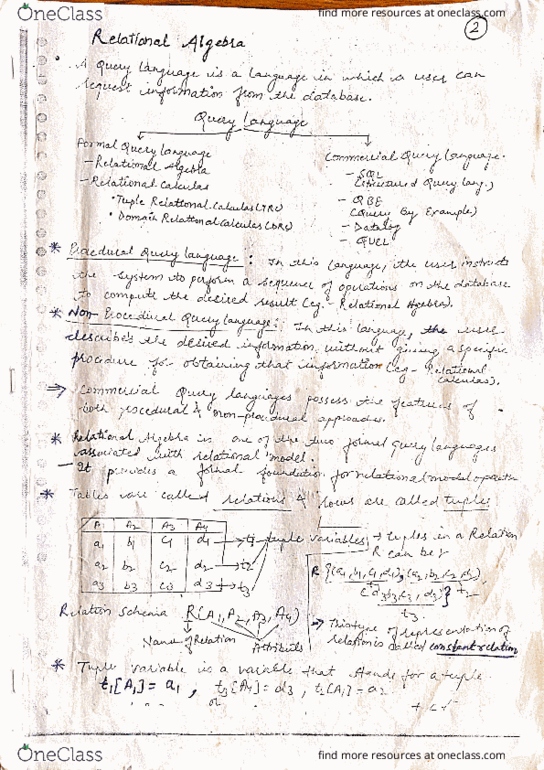 OneClass
find more resources at oneclass.com
2
Relational Algebra
A Query language is a language in which a user can
request information from the database.
Query language
Formal Query language
- Relational Algebra
- Relational Calculas
• Tuple Relational Calculas (TRC)
• Domain Relational Calculas (DRC)
Commercial Query language.
- SQL
(Structured Query Lang.)
- QBE
(Query By Example)
- Datalog
- QUEL
* Procedural Query language : In this language, the user instructs
the system to perform a sequence of operations on the database
to compute the desired result (eg:- Relational Algebra).
* Non-Procedural Query language: In this language, the user
describes the desired information without giving a specific
procedure for obtaining that information (eg - Relational
calculas).
⇒ Commercial Query languages possess the features of
both procedural & non-procedural approaches.
* Relational Algebra is one of the two formal query languages
associated with relational model.
- It provides a formal foundation for relational model
* Tables are called relations & rows are called tuples
A1 A2 A3 A4
a1 b1 c1 d1 → t1 tuple variables
a2 b2 c2 d2 → t2
a3 b3 c3 d3 → t3
→ tuples in a Relation
R can be
R {(a1, b1, c1, d1), (a2, b2, c2, d2)
t2
(a3, b3, c3, d3)}
t3
→ This type of representation of
relation is called constant relation
Relation Schema R(A1, A2, A3, A4)
Name of Relation Attributes
* Tuple variable is a variable that stands for a tuple.
t1[A1] = a1 , t3[A4] = d3 , t2[A1] = a2
or
OneClass
find more resources at oneclass.com